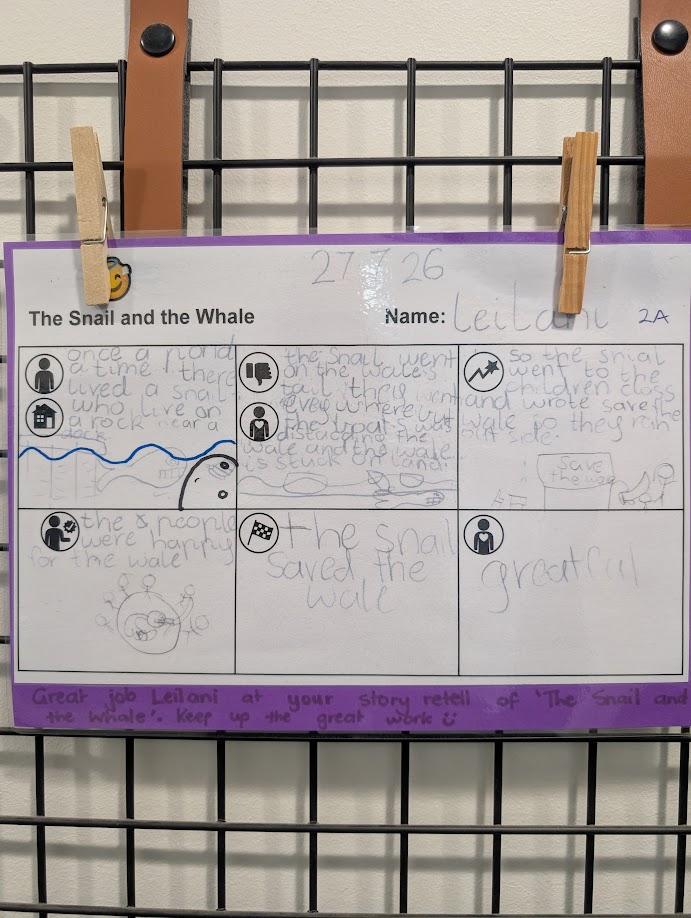 27 7 26
The Snail and the Whale
Name: Leilani 2A
once a
a time there
lived a snail
who live on
a rock near a
dock
the Snail went
on the wale's
tail they went
every where but
the boat's was
distacding the
wale and the wale
is stuck on land.
so the snial
went to the
children class
and wrote save the
wale so they ran
out side.
Save
the wale
the people
were happy
for the wale
the snail
Saved the
wale
greatful
Great job Leilani at your story retell of 'The Snail and
the Whale'. Keep up the great work